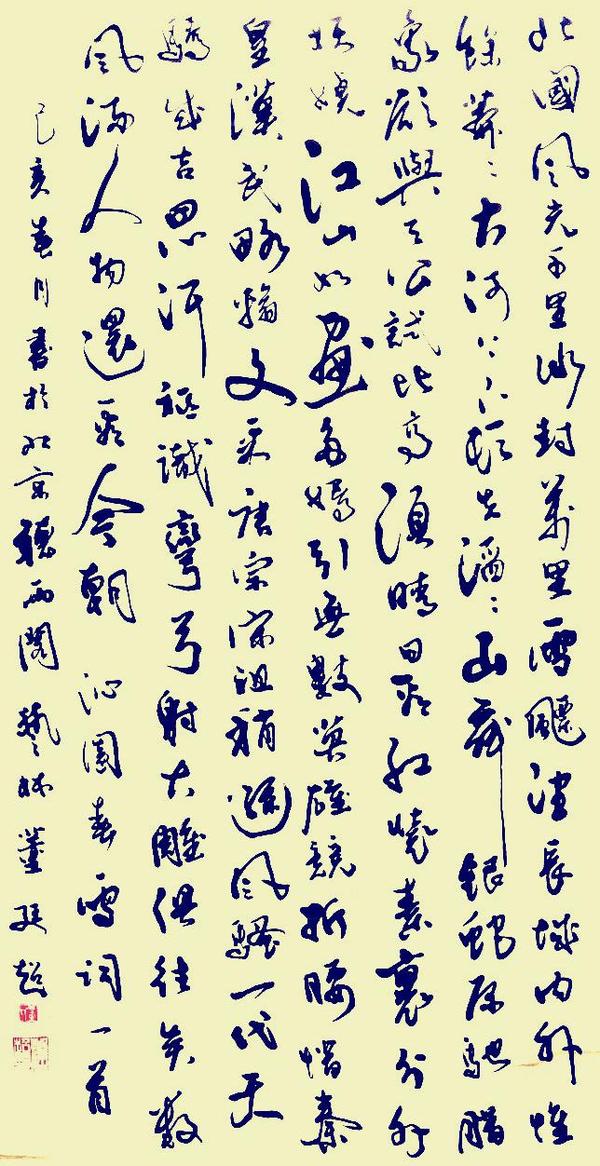 北國風光千里冰封萬里雪飄望長城內外惟
餘莽〻大河上下頓失滔〻山舞銀蛇原馳腊
象欲與天公試比高須晴日看紅素裹分外
妖嬈江山如畫多嬌引無數英雄競折腰惜秦
皇漢武略輸文采唐宗宋祖稍遜風騷一代天
驕成吉思汗祗識彎弓射大雕俱往矣數
風流人物還看今朝 沁園春雪詞一首
己亥春月書於北京聽雨閣藝林董廷超